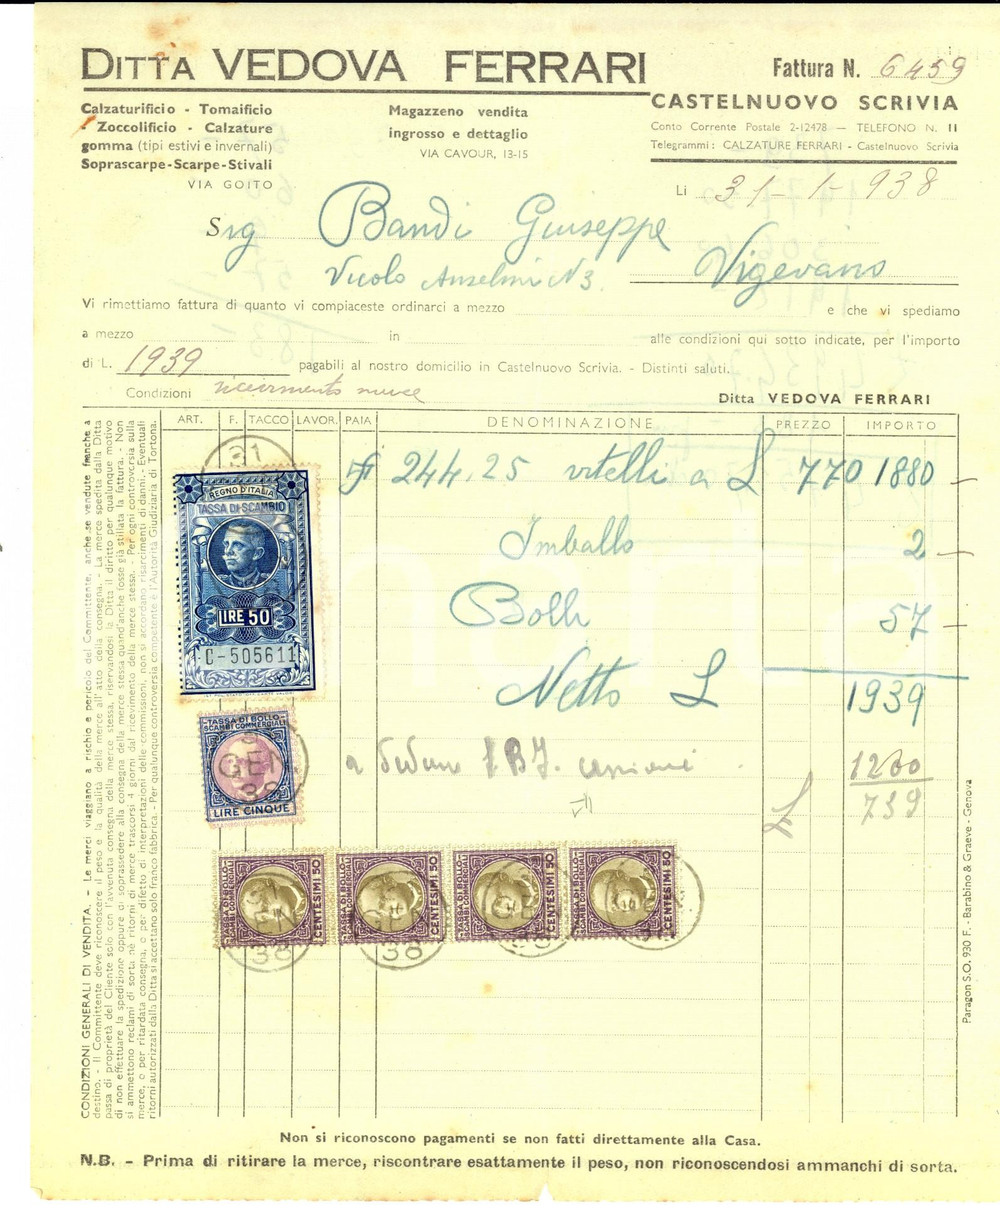 DITTA VEDOVA FERRARI
Fattura N. 6459
Calzaturificio - Tomaificio
- Zoccolificio - Calzature
gomma (tipi estivi e invernali)
Soprascarpe-Scarpe-Stivali
VIA GOITO
Magazzeno vendita
ingrosso e dettaglio
VIA CAVOUR, 13-15
CASTELNUOVO SCRIVIA
Conto Corrente Postale 2-12478 — TELEFONO N. 11
Telegrammi: CALZATURE FERRARI - Castelnuovo Scrivia
Li 31-1-938
Sig Bandi Giuseppe
Vicolo Anselmi N 3.
Vigevano
Vi rimettiamo fattura di quanto vi compiaceste ordinarci a mezzo e che vi spediamo
a mezzo in alle condizioni qui sotto indicate, per l'importo
di L. 1939 pagabili al nostro domicilio in Castelnuovo Scrivia. - Distinti saluti.
Condizioni ricevimento merce
Ditta VEDOVA FERRARI
ART. F. TACCO LAVOR. PAIA DENOMINAZIONE PREZZO IMPORTO
244,25 vitelli a L 770 1880 —
Imballo 2 —
Bolli 57 —
Netto L 1939
a dedurre 1200
L 739
31
REGNO D'ITALIA
TASSA DI SCAMBIO
LIRE 50
C-505611
TASSA DI BOLLO
SCAMBI COMMERCIALI
GEN
38
LIRE CINQUE
TASSA DI BOLLO
SCAMBI COMMERCIALI
CENTESIMI 50
TASSA DI BOLLO
SCAMBI COMMERCIALI
CENTESIMI 50
TASSA DI BOLLO
SCAMBI COMMERCIALI
CENTESIMI 50
TASSA DI BOLLO
SCAMBI COMMERCIALI
CENTESIMI 50
GEN
38
GEN
38
CONDIZIONI GENERALI DI VENDITA. - Le merci viaggiano a rischio e pericolo del Committente, anche se vendute franche a
destino. - Il Committente deve riconoscere il peso e la qualità della merce all'atto della consegna. - La merce spedita dalla Ditta
passa di proprietà del Cliente solo con l'avvenuta consegna della merce stessa, riservandosi la Ditta il diritto per qualunque motivo
di non effettuare la spedizione oppure di soprassedere alla consegna della merce stessa quand'anche fosse già stillata la fattura. - Non
si ammettono reclami di sorta nè ritorni di merce trascorsi 4 giorni dal ricevimento della merce stessa. - Per ogni controversia sulla
merce, o per ritardata consegna, o per difetto di interpretazioni delle commissioni, non si accordano risarcimenti di danni. - Eventuali
ritorni autorizzati dalla Ditta si accettano solo franco fabbrica. - Per qualunque controversia competente è l'Autorità Giudiziaria di Tortona.
Paragon S.O. 930 F. - Barabino & Graeve - Genova
Non si riconoscono pagamenti se non fatti direttamente alla Casa.
N.B. - Prima di ritirare la merce, riscontrare esattamente il peso, non riconoscendosi ammanchi di sorta.